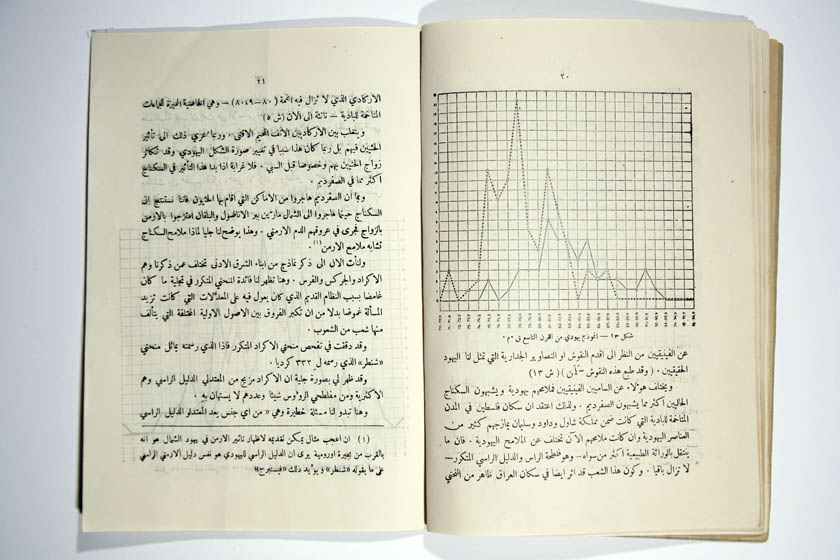 ٢٠
شكل ١٣ — انموذج يهودي من القرن التاسع ق . م .
عن الفينيقيين من النظر الى اقدم النقوش والتصاوير الجدارية التي تمثل لنا اليهود
الحقيقيين . ( وقد طبع هذه النقوش ) ( ش ١٣ )
ويختلف هؤلاء عن الساميين الفينيقيين فملامحهم يهودية ويشبهون السكناج
الحاليين اكثر مما يشبهون السفرديم . ولذلك اعتقد ان سكان فلسطين في المدن
المتاخمة للبادية التي كانت ضمن مملكة شاول وداود وسليمان يمازجهم كثير من
العناصر اليهودية وان كانت ملامحهم الآن تختلف عن الملامح اليهودية . فان ما
ينتقل بالوراثة الطبيعية اكثر من سواه — وهو فطحة الراس والدليل الراسي المتكرر —
لا تزال باقيا . وكون هذا الشعب قد اثر ايضا في سكان العراق ظاهر من المنحني
٢١
الاركادي الذي لا تزال فيه القمة ( ٨٠ — ٨٠،٤٩ ) — وهي الخاصية المميزة للجماعات
المتاخمة للبادية — ناتئة الى الان ( ش ٥ )
ويغلب بين الاركاديين الانف الضخم الاقنى . وربما عزي ذلك الى تأثير
الحثيين فيهم بل ربما كان هذا سببا في تغيير صورة الشكل اليهودي وقد تكاثر
زواج الحثيين بهم وخصوصا قبل السبي . فلا غرابة اذا بدا هذا التأثير في السكناج
اكثر مما في الصفرديم .
وبما ان السفرديم هاجروا من الاماكن التي اقام بها الحثيون فاننا نستنتج ان
السكناج حينما هاجروا الى الشمال مارين ببر الاناضول والبلقان امتزجوا بالارمن
بالزواج فجرى في عروقهم الدم الارمني . وهذا يوضح لنا جليا لماذا ملامح السكناج
تشابه ملامح الارمن (١) .
ولنأت الان الى ذكر نماذج من ابناء الشرق الادنى تختلف عمن ذكرنا وهم
الاكراد والجركس والفرس . وهنا تظهر لنا فائدة المنحني المتكرر في تجلية ما كان
غامضا بسبب النظام القديم الذي كان يعول فيه على المعدلات التي كانت تزيد
المسألة غموضا بدلا من ان تكبر الفروق بين الاصول الاولية المختلفة التي يتألف
منها شعب من الشعوب .
وقد دققت في تفحص منحني الاكراد المتكرر فاذا الذي رسمته يماثل منحني
«شنطر» الذي رسمه ل ٣٣٢ كرديا .
وقد ظهر لي بصورة جلية ان الاكراد مزيج من المعتدلي الدليل الراسي وهم
الاكثرية ومن مفلطحي الرؤوس شيئا وعددهم لا يستهان به .
وهنا تبدو لنا مسئلة خطيرة وهي « من اي جنس يعد المعتدلو الدليل الراسي
(١) ان اعجب مثال يمكن تقديمه لاظهار تاثير الارمن في يهود الشمال هو انه
بالقرب من بحيرة اورومية يرى ان الدليل الراسي لليهودي هو نفس دليل الارمني الراسي
على ما يقوله «شنطر» ويؤيد ذلك «فيسنبرج»